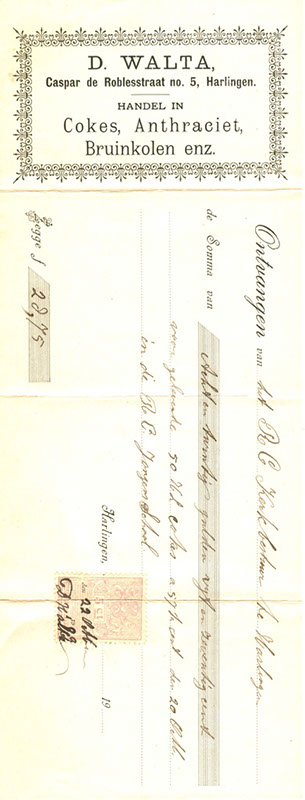 D. WALTA,
Caspar de Roblesstraat no. 5, Harlingen.
HANDEL IN
Cokes, Anthraciet,
Bruinkolen enz.
Ontvangen van het R C Kerkbestuur te Harlingen
de Somma van Acht en twintig gulden vyf en zeventig cent
voor geleverde 50 cokes a cent den 20 Octb
in de R. C. Jongens School
Harlingen, 19
22 Octb
D Walta
Zegge f 28,75